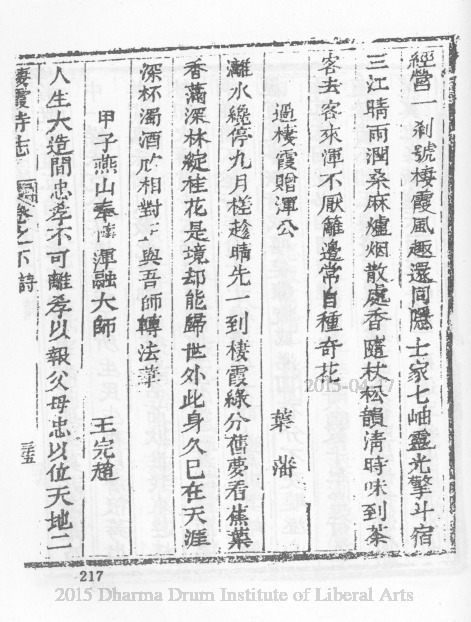 經營一剎號棲霞風趣還同隱士家七岫靈光擎斗宿
三江晴雨潤桑麻爐烟散處香隨杖松韻清時味到茶
客去客來渾不厭籬邊常自種奇花
過棲霞贈渾公
葉藩
灕水纔停九月槎趁晴先一到棲霞綠分舊夢看蕉葉
香滿深林綻桂花是境却能歸世外此身久已在天涯
深杯濁酒欣相對與吾師轉法華
甲子燕山奉渾融大師
王完趙
人生大造間忠孝不可離孝以報父母忠以位天地二
棲霞寺志
卷之下詩
三五
217
2015-04-17
2015 Dharma Drum Institute of Liberal Arts